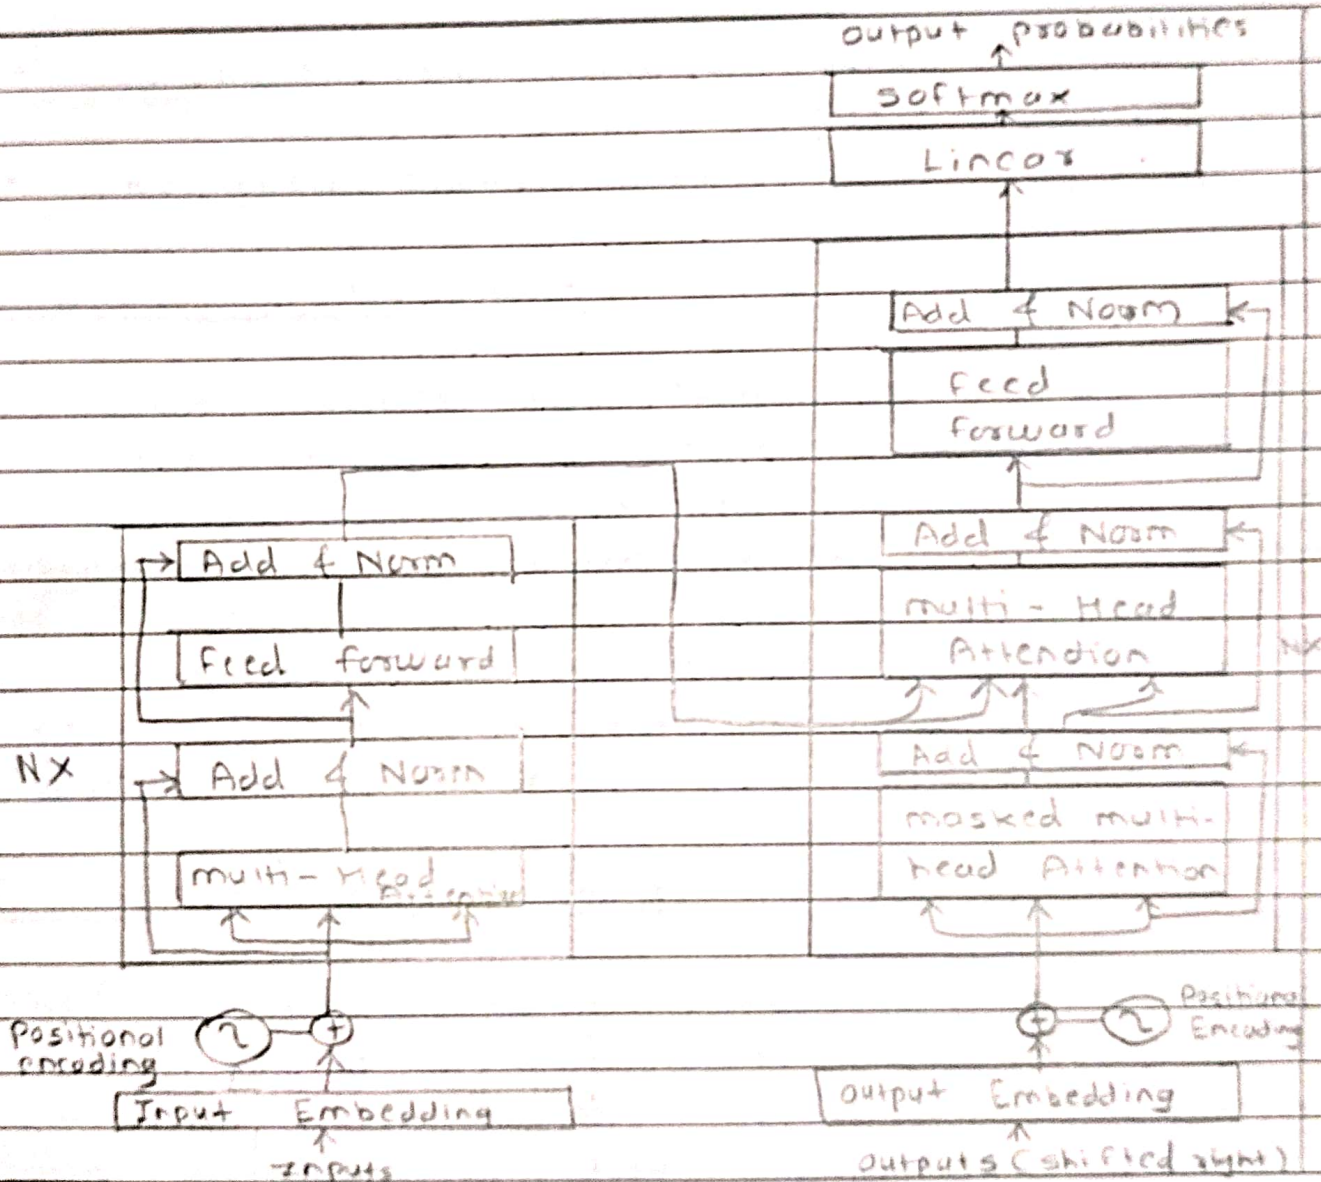 Output probabilities
softmax
Linear
Add & Norm
Feed
forward
Add & Norm
multi - Head
Attendion
Add & Norm
masked multi-
head Attention
NX
Positional
Encoding
Output Embedding
Outputs (shifted right)
Add & Norm
Feed forward
Add & Norm
multi-Head
Attention
NX
Positional
encoding
Input Embedding
Inputs